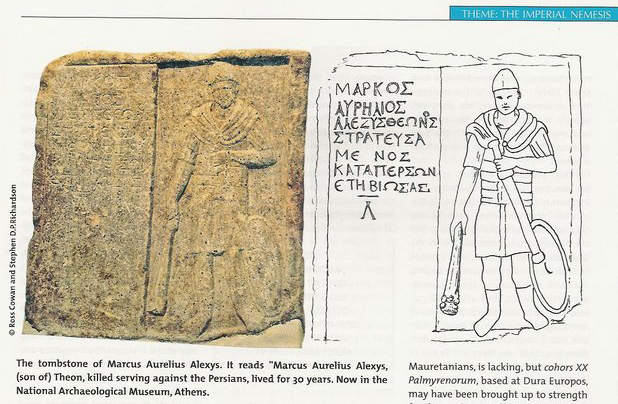 THEME: THE IMPERIAL NEMESIS
© Ross Cowan and Stephen D.P.Richardson
ΜΑΡΚΟΣ
ΑΥΡΗΛΙΟΣ
ΑΛΕΞΥΣΘΕΩΝΟΣ
ΣΤΡΑΤΕΥΣΑ
ΜΕ ΝΟΣ
ΚΑΤΑΠΕΡΣΩΝ
ΕΤΗ ΒΙΩΣΑΣ
Λ
The tombstone of Marcus Aurelius Alexys. It reads "Marcus Aurelius Alexys,
(son of) Theon, killed serving against the Persians, lived for 30 years. Now in the
National Archaeological Museum, Athens.
Mauretanians, is lacking, but cohors XX
Palmyrenorum, based at Dura Europos,
may have been brought up to strength